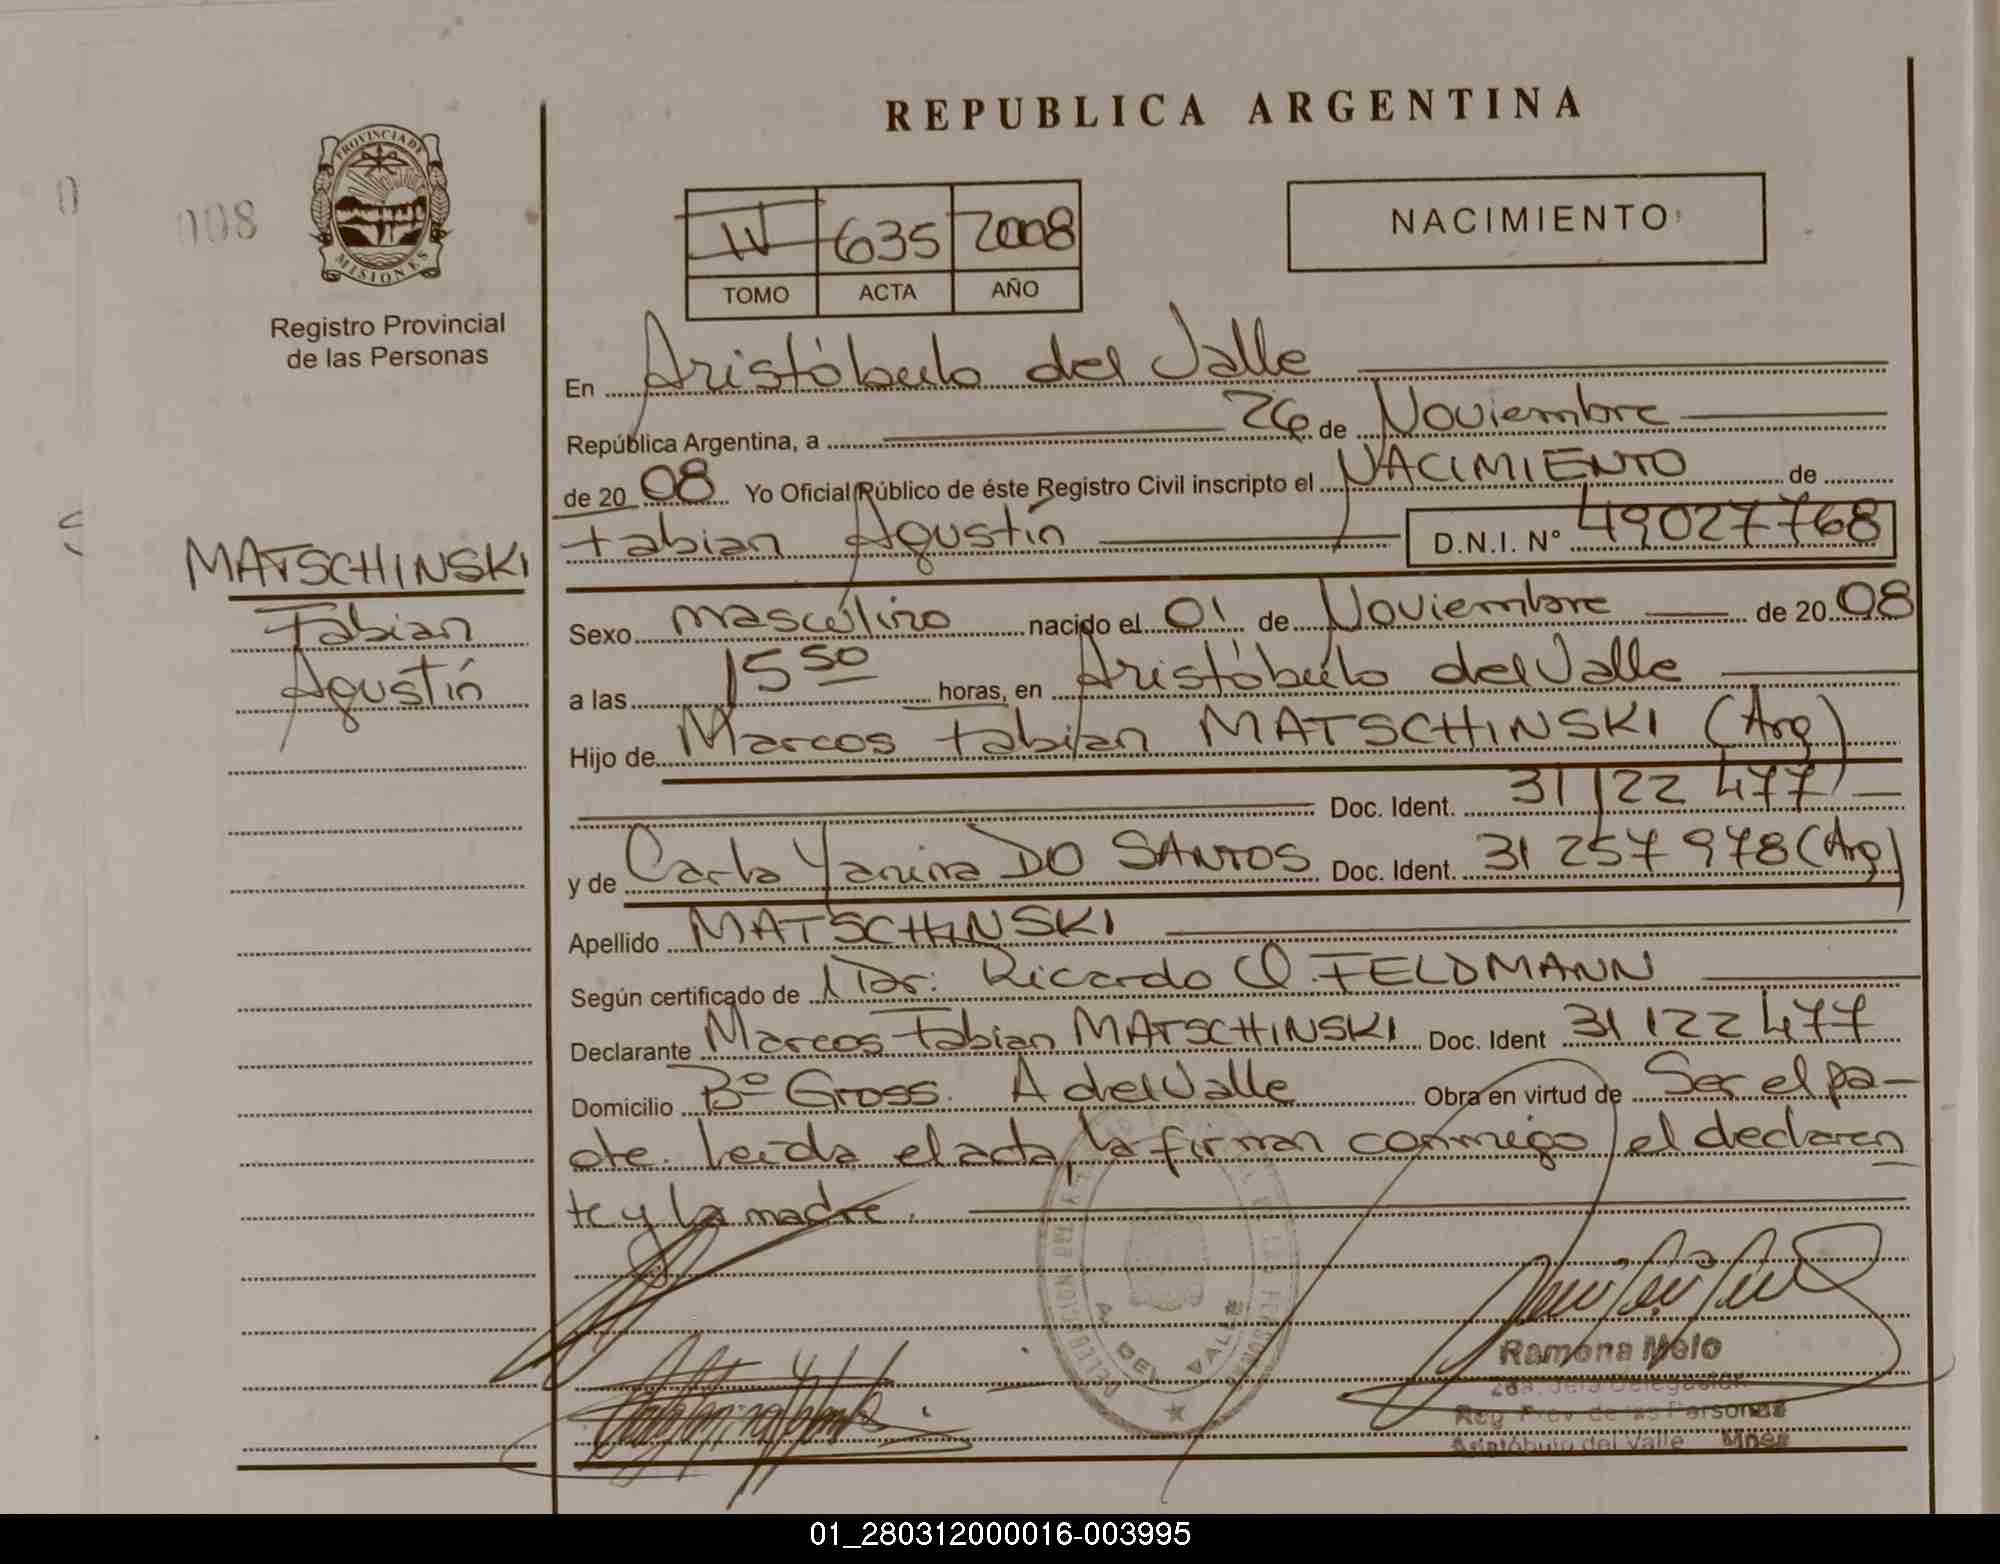 REPUBLICA ARGENTINA
008
PROVINCIA DE
MISIONES
Registro Provincial
de las Personas
NACIMIENTO
635 2008
TOMO ACTA AÑO
En Aristóbulo del Valle
República Argentina, a 26 de Noviembre
de 20 08 Yo Oficial Público de éste Registro Civil inscripto el NACIMIENTO de
Fabian Agustín D.N.I. N° 49027768
MATSCHINSKI
Fabian
Agustín
Sexo masculino nacido el 01 de Noviembre de 20 08
a las 15 50 horas, en Aristóbulo del Valle
Hijo de Marcos Fabian MATSCHINSKI (Arg)
Doc. Ident. 31 122 477
y de Carla Yanina DO SANTOS Doc. Ident. 31 257 978 (Arg)
Apellido MATSCHINSKI
Según certificado de Dr: Ricardo O. FELDMANN
Declarante Marcos Fabian MATSCHINSKI Doc. Ident 31 122 477
Domicilio Bº Gross. A del Valle Obra en virtud de Ser el pa-
dre. Leída el acta, la firman conmigo el declaran
te y la madre.
A. DEL VALLE
Ramona Melo
2da. Jefa Delegación
Reg. Prov. de las Personas
Aristóbulo del Valle Mnes
01_280312000016-003995